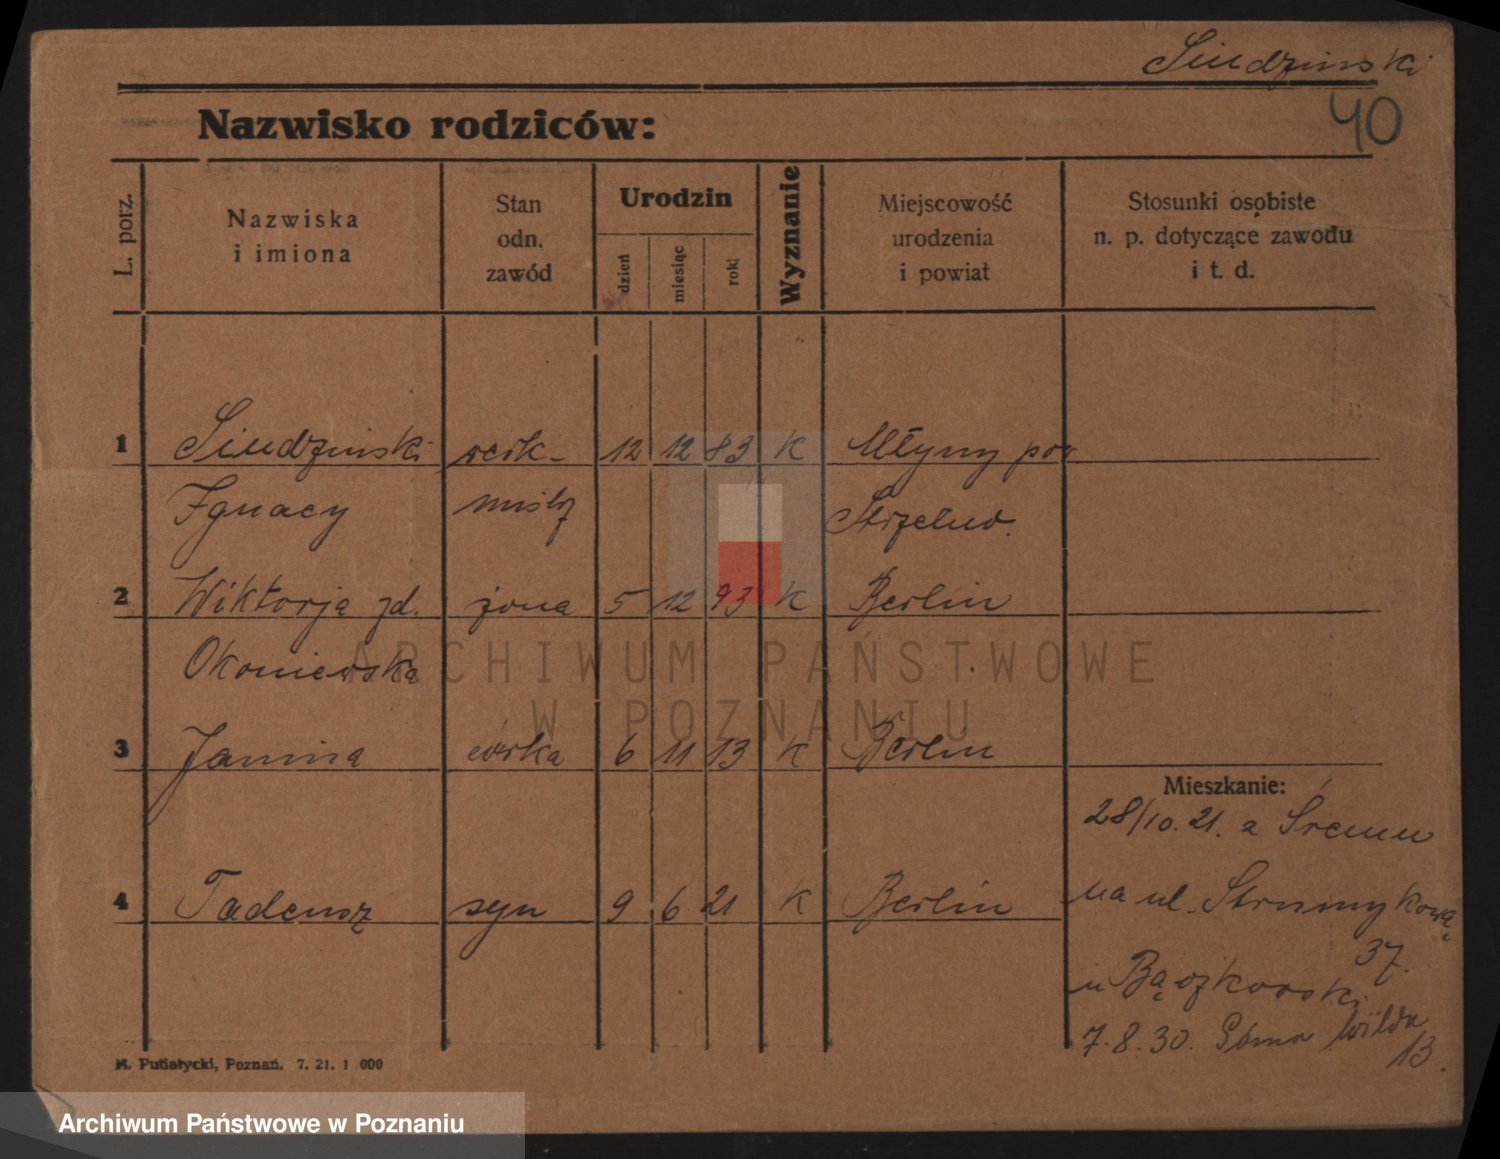 Siudziński
40
Nazwisko rodziców:
L. porz.
Nazwiska
i imiona
Stan
odn.
zawód
Urodzin
dzień
miesiąc
rok
Wyznanie
Miejscowość
urodzenia
i powiat
Stosunki osobiste
n. p. dotyczące zawodu
i t. d.
1 Siudziński 12 12 83 K Młyny pow
Ignacy Strzelno.
2 Wiktorja zd. żona 5 12 93 K Berlin
Okoniewska
3 Janina córka 6 11 13 K Berlin
Mieszkanie:
28/10. 21. z Śremu
4 Tadeusz syn 9 6 21 K Berlin
na ul. Strumykową
37.
u Bączkowski
7. 8. 30. Górna Wilda
13.
M. Putiatycki, Poznań. 7. 21. 1 000
ARCHIWUM PAŃSTWOWE
W POZNANIU
Archiwum Państwowe w Poznaniu